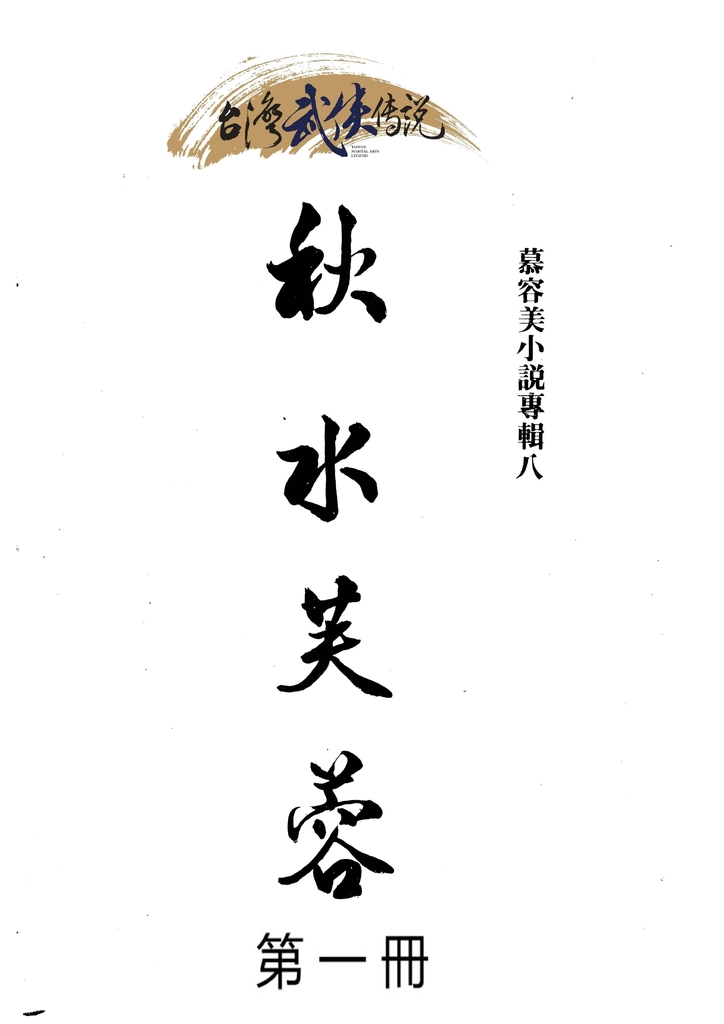 台灣武俠传説
TAIWAN
MARTIAL ARTS
LEGEND
慕容美小説專輯八
秋水芙蓉
第一冊